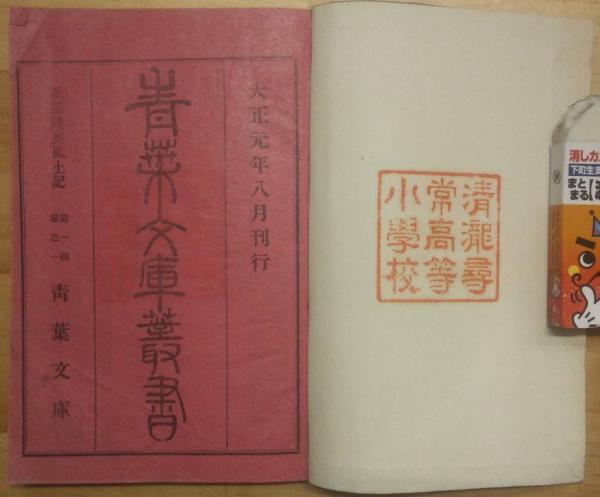 大正元年八月刊行
青葉文庫叢書
風土記
第一輯
巻之一
青葉文庫
清瀧尋
常高等
小學校
消しカ
下町生
まと
まる